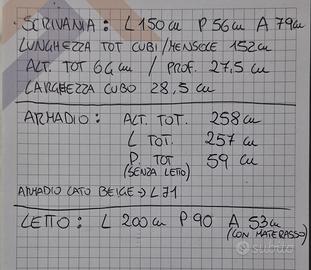 SCRIVANIA: L 150 cm P 56 cm A 79 cm
LUNGHEZZA TOT CUBI/MENSOLE 152 cm
ALT. TOT 64 cm / PROF. 27,5 cm
LARGHEZZA CUBO 28,5 cm
ARMADIO: ALT. TOT. 258 cm
L TOT. 257 cm
P. TOT 59 cm
(SENZA LETTO)
ARMADIO LATO BEIGE → L 71
LETTO: L 200 cm P 90 A 53 cm
(CON MATERASSO)
subito